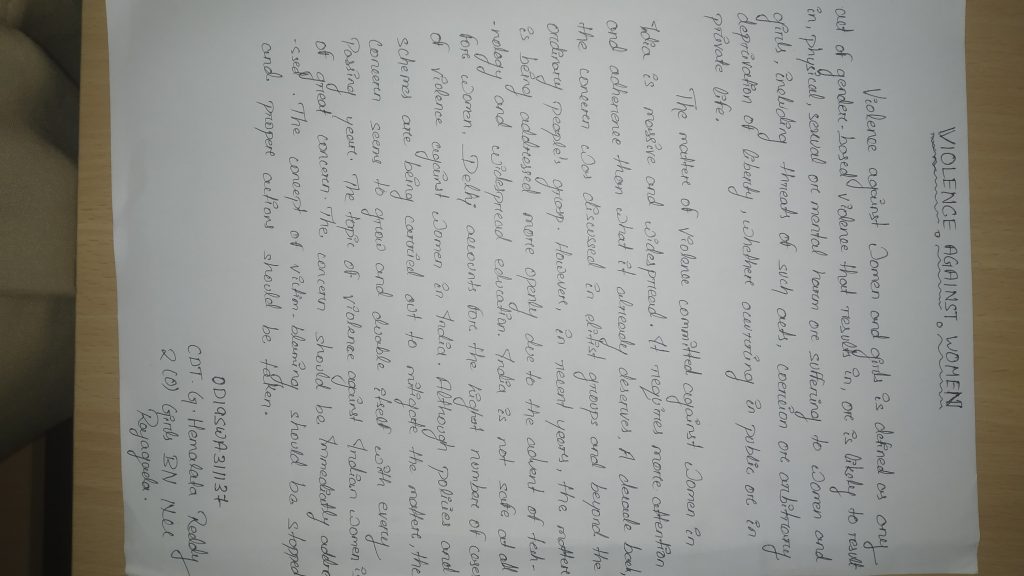 VIOLENCE AGAINST WOMEN
Violence against Women and girls is defined as any
act of gender-based violence that results in, or is likely to result
in, physical, sexual or mental harm or suffering to women and
girls, including threats of such acts, coercion or arbitrary
deprivation of liberty, whethere occurring in public or in
private life.
The matter of violence committed against women in
India is massive and widespread. It requires more attention
and adherence than what it already deserves. A decade back,
the concern was discussed in elitist groups and beyond the
ordinary people's group. However, in recent years, the matter
is being addressed more openly due to the advent of tech-
-nology and widespread education. India is not safe at all
for women. Delhi accounts for the highest number of cases
of violence against women in India. Although policies and
schemes are being carried out to mitigate the matter, the
concern seems to grow and double itself with every
Passing year. The topic of violence against Indian women is
of great concern. The concern should be immediatly addre
-ssed. The concept of victim-blaming should be stopped
and proper actions should be taken.
OD19SWA311137
CDT. G. Hemalata Reddy
2 (O) Girls BN NCC
Rayagada.